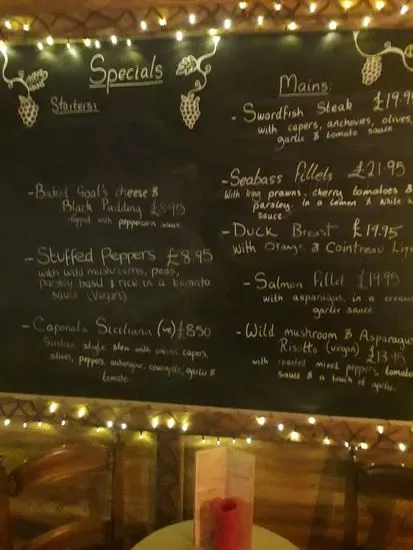 Specials
Starters:
- Baked Goat's cheese &
Black Pudding £8.95
topped with peppercorn sauce
- Stuffed Peppers £8.95
with wild mushrooms, peas,
parsley basil & rice in a tomato
sauce (Vegan)
- Caponata Siciliana (ve) £8.50
Sicilian style stew with onions capers,
olives, peppers, aubergine, courgette, garlic &
tomato.
Mains:
- Swordfish Steak £19.95
with capers, anchovies, olives,
garlic & tomato sauce
- Seabass fillets £21.95
With king prawns, cherry tomatoes &
parsley. in a lemon & white
sauce.
- Duck Breast £19.95
With Orange & Cointreau
- Salmon fillet £19.95
with asparagus, in a
garlic sauce.
- Wild mushroom & Asparagus
Risotto (vegan) £13.95
with roasted mixed peppers, tomato
sauce & a touch of garlic.